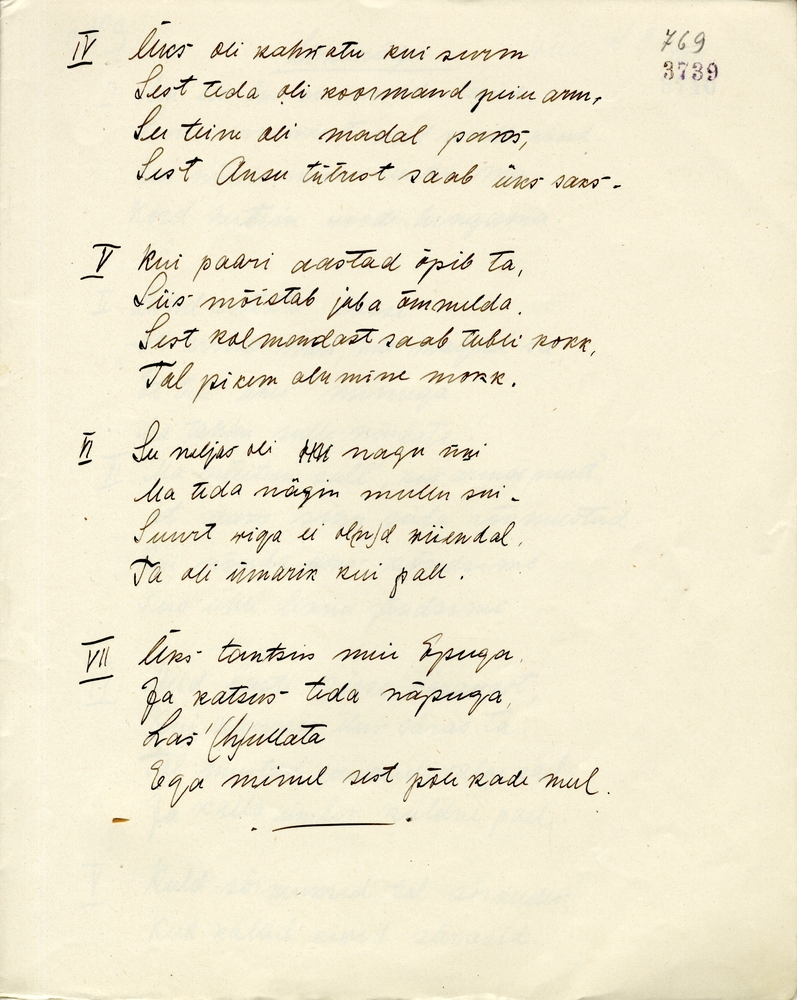 769
3739
IV Üks oli kahwatu kui surm
Sest teda oli koormand piin arm,
See teine oli madal paks,
Sest Ansu tütrest saab üks saks-
V Kui paari aastad õpib ta,
Siis mõistab juba õmmelda.
Sest kolmandast saab tubli kokk,
Tal pikem alumine mokk.
VI See neljas oli nagu
Ma teda nägin mullu sui-
Suurt wiga ei ol(n)d wiiendal,
Ta oli ümarik kui pall.
VII Üks tantsis miu Epuga.
Ja katsus teda näpuga,
Las' (h)ullata
Ega minul sest põle kade meel.